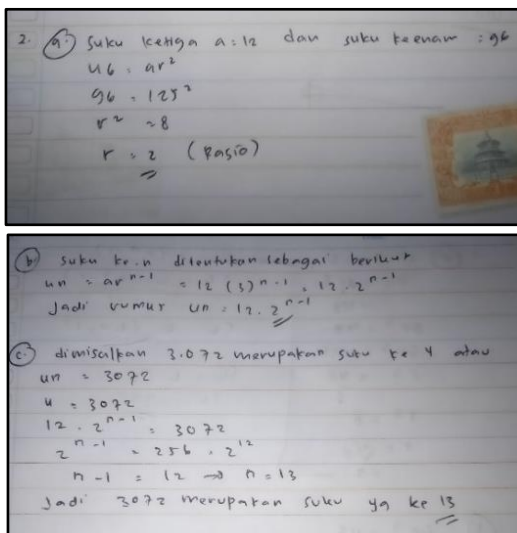 2. a. Suku ketiga a = 12 dan suku keenam = 96
u6 = ar²
96 = 12r²
r² = 8
r = 2 (Rasio)
b. Suku ke-n ditentukan sebagai berikut
un = ar^n-1 = 12 (3)^n-1 = 12 . 2^n-1
Jadi rumus un = 12 . 2^n-1
c. dimisalkan 3.072 merupakan suku ke y atau
un = 3072
u = 3072
12 . 2^n-1 = 3072
2^n-1 = 256 . 2^12
n-1 = 12 → n = 13
Jadi 3072 merupakan suku yg ke 13